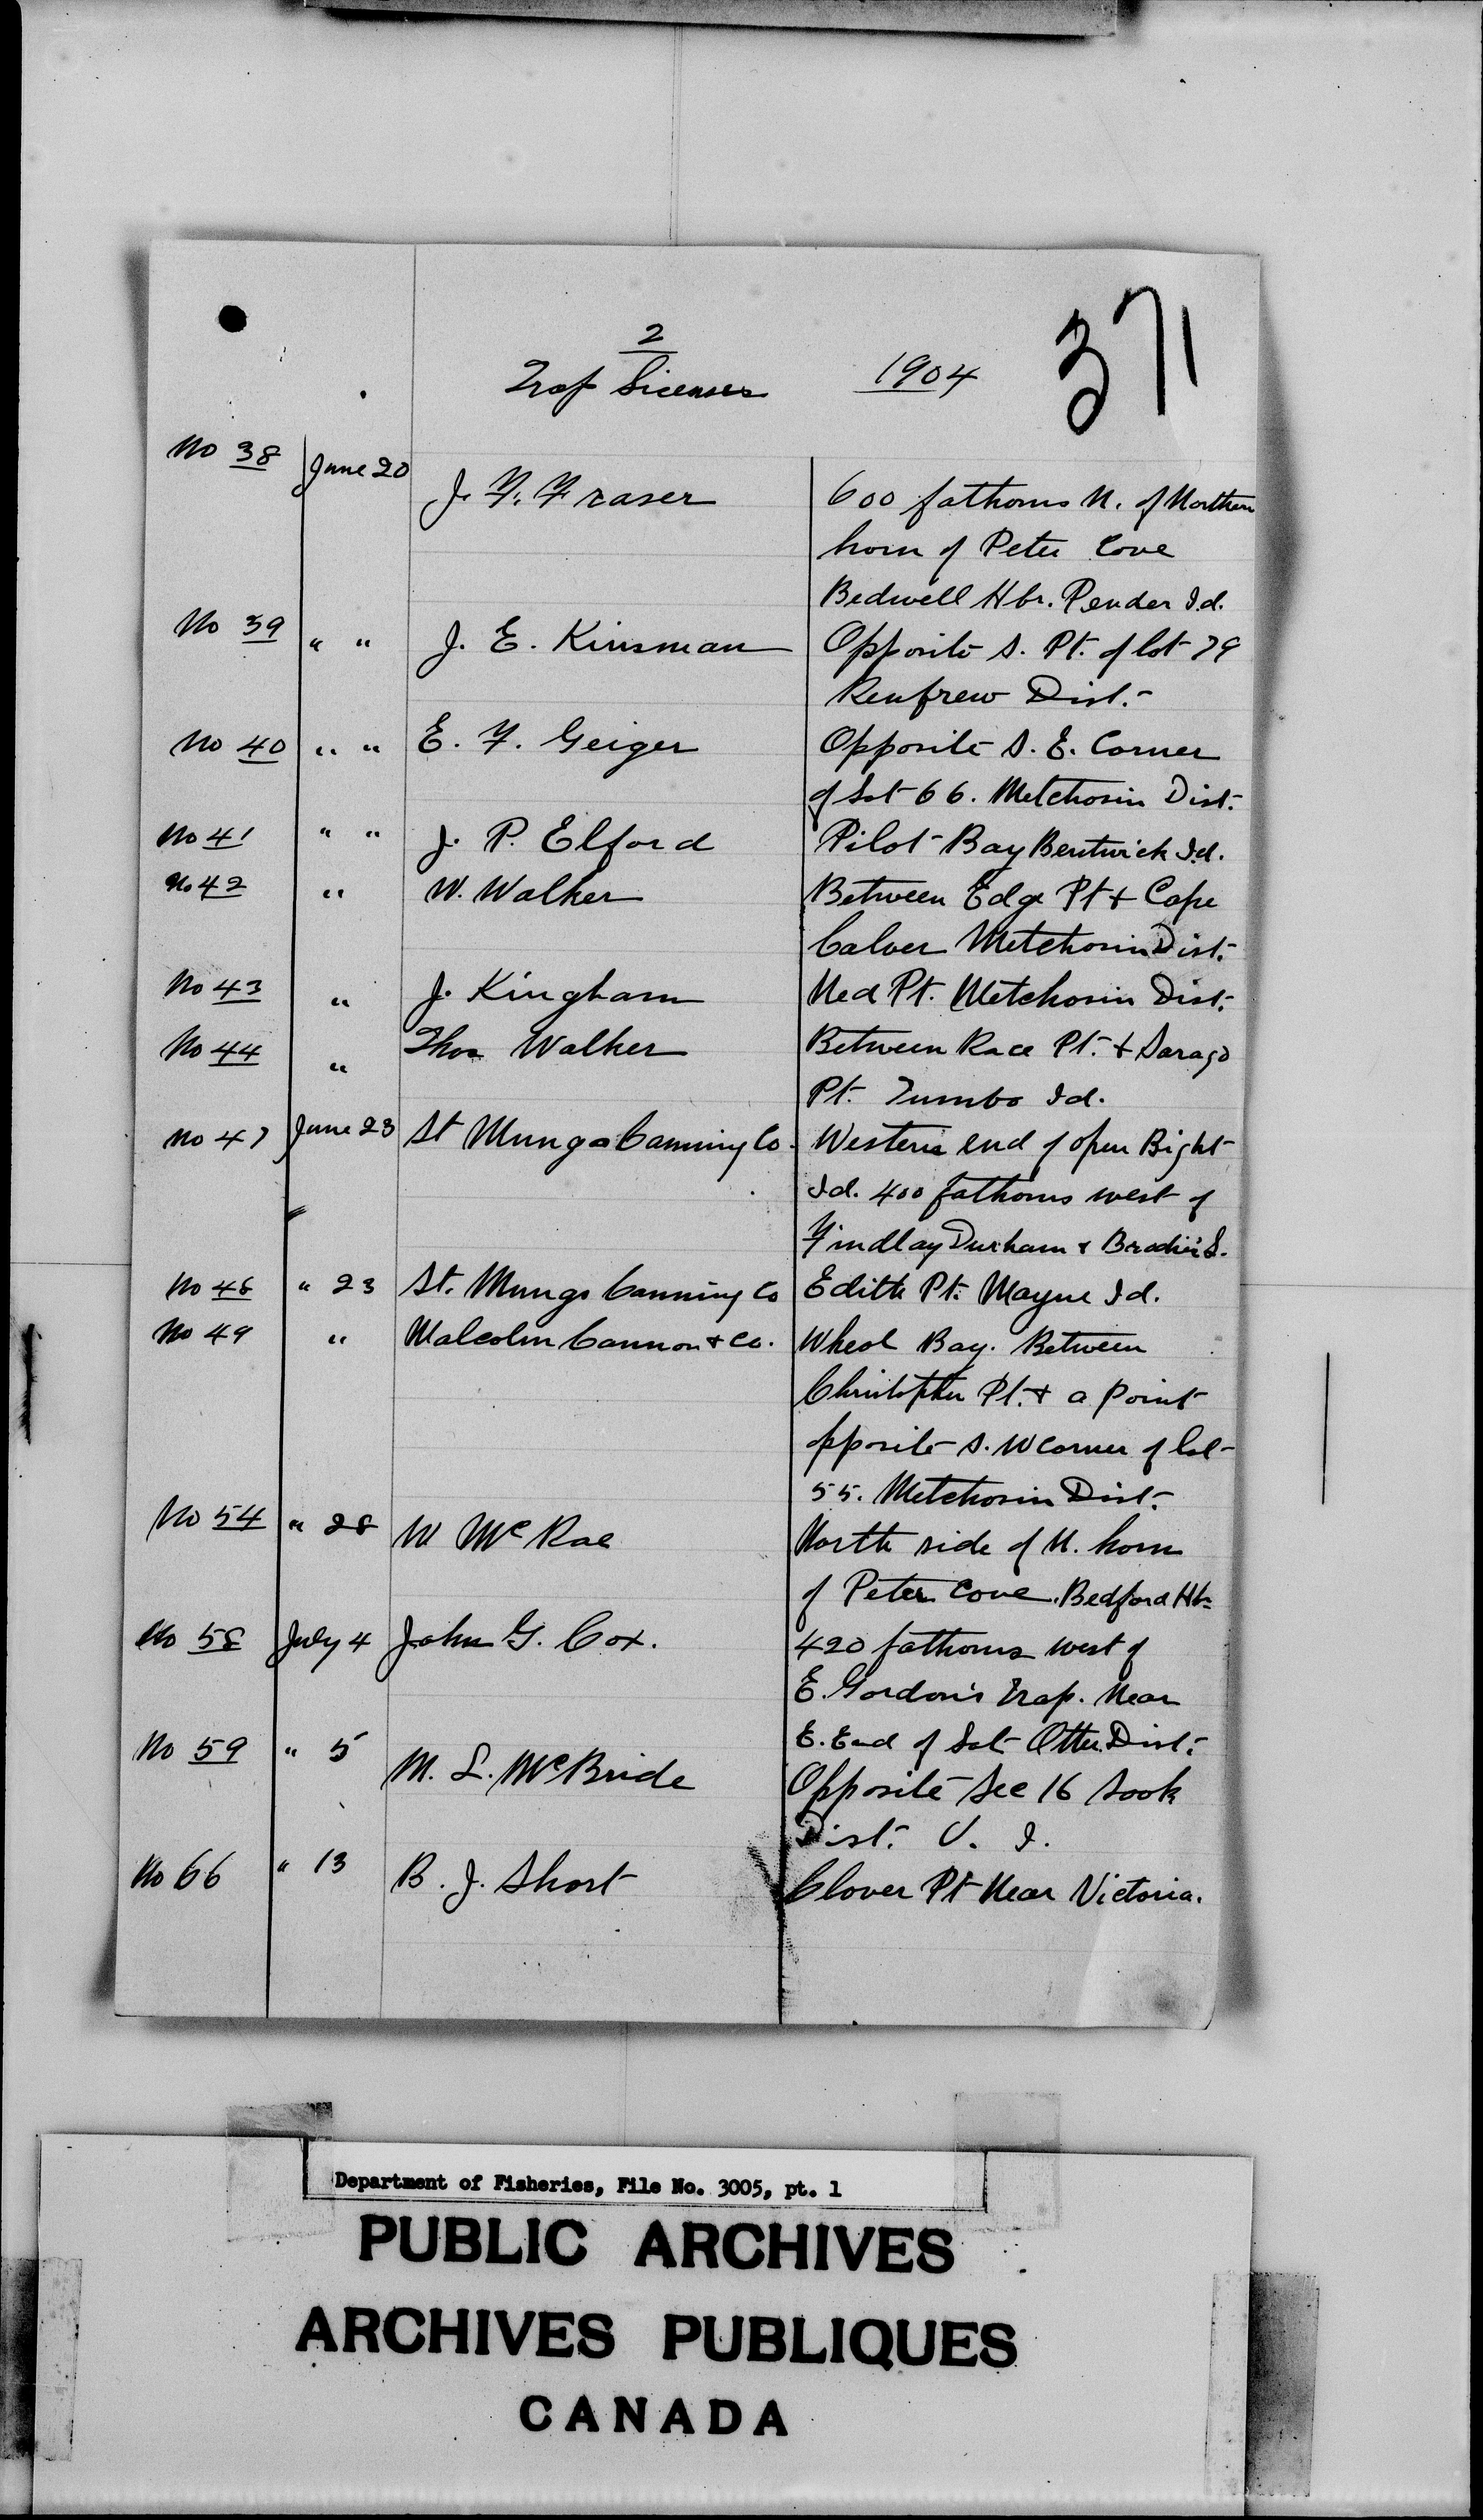 371
2
Trap Licenses 1904
No 38 June 20 J. F. Fraser 600 fathoms N. of Northern
horn of Peter Cove
Bedwell Hbr. Pender Id.
No 39 " " J. E. Kinsman Opposite S. Pt. of lot 79
Renfrew Dist.
No 40 " " E. F. Geiger Opposite S. E. Corner
of Lot 66. Metchosin Dist.
No 41 " " J. P. Elford Pilot Bay Bentwick Id.
No 42 " W. Walker Between Edge Pt + Cape
Calver Metchosin Dist.
No 43 " J. Kingham Ned Pt. Metchosin Dist.
No 44 " Thos Walker Between Race Pt. +
Pt. Tumbo Id.
No 47 June 23 St Mungo Canning Co. Western end of open Bight
Id. 400 fathoms west of
Findlay Durham & Brodie's L.
No 48 " 23 St. Mungo Canning Co Edith Pt. Mayne Id.
No 49 " Malcolm Cannon & Co. Bay. Between
Christopher Pt. + a point
opposite S. W corner of lot
55. Metchosin Dist.
No 54 " 28 W McRae North side of N. horn
of Peter Cove. Bedford Hbr
No 58 July 4 John G. Cox. 420 fathoms west of
E. Gordon's Trap. Near
E. End of Lot Otter Dist.
No 59 " 5 M. L. McBride Opposite Sec 16 Sook
Dist. V. I.
No 66 " 13 B. J. Short Clover Pt Near Victoria.
Department of Fisheries, File No. 3005, pt. 1
PUBLIC ARCHIVES
ARCHIVES PUBLIQUES
CANADA